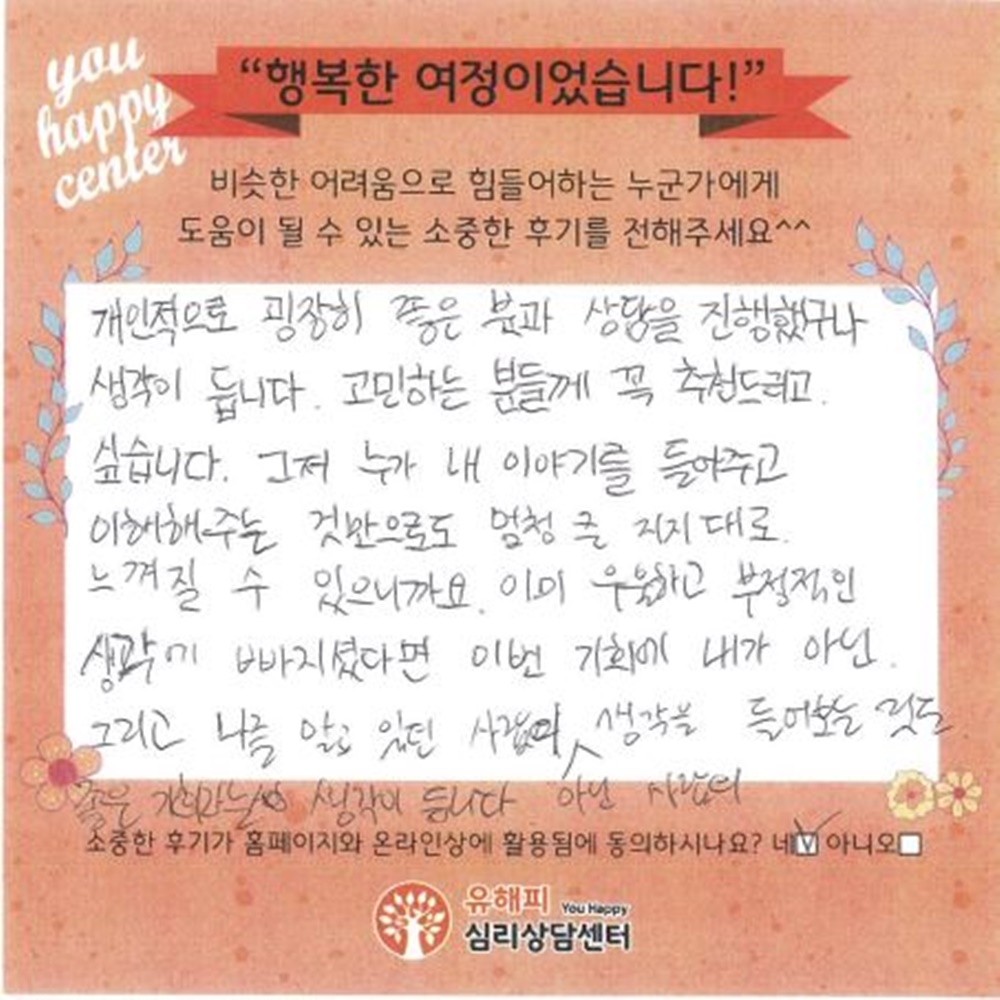 you
happy
center
“행복한 여정이었습니다!”
비슷한 어려움으로 힘들어하는 누군가에게
도움이 될 수 있는 소중한 후기를 전해주세요^^
개인적으로 굉장히 좋은 분과 상담을 진행했구나
생각이 듭니다. 고민하는 분들께 꼭 추천드리고.
싶습니다. 그저 누가 내 이야기를 들어주고
이해해주는 것만으로도 엄청 큰 지지대로.
느껴질 수 있으니까요. 이미 우울하고 부정적인
생각에 빠지셨다면 이번 기회에 내가 아닌.
그리고 나를 알고 있던 사람이 생각을 들어보는 것도
좋은 기회라는 생각이 듭니다 아닌 사람의
소중한 후기가 홈페이지와 온라인상에 활용됨에 동의하시나요? 네 아니오
유해피 You Happy
심리상담센터